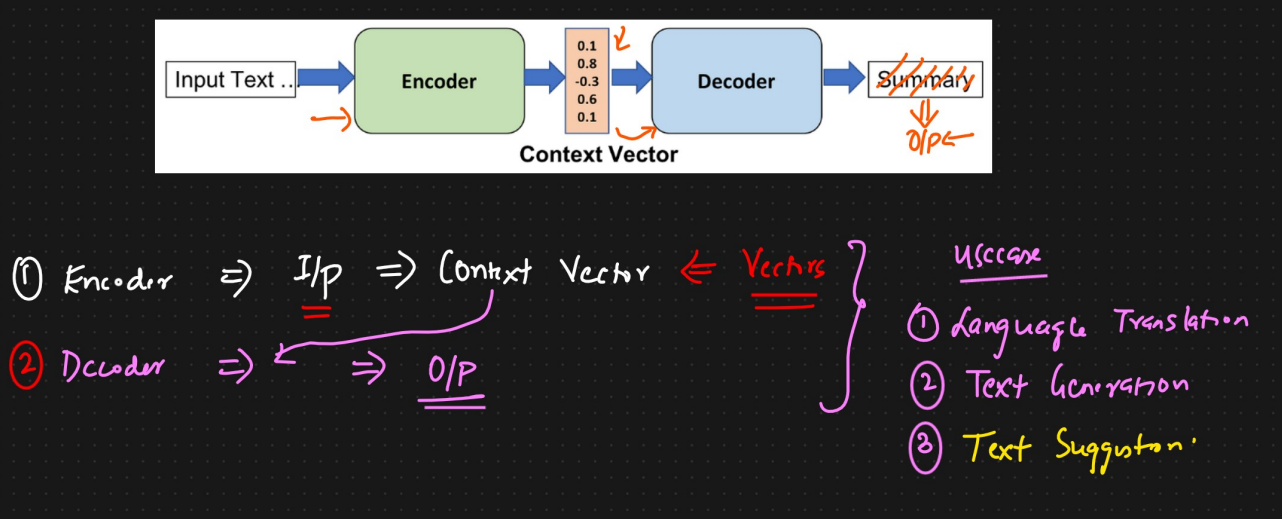 Input Text ...
Encoder
0.1
0.8
-0.3
0.6
0.1
Decoder
Summary
O/P
Context Vector
① Encoder ⇒ I/p ⇒ Context Vector ⇐ Vectors
② Decoder ⇒ ⇒ O/P
Usecase
① Language Translation
② Text Generation
③ Text Suggestion.